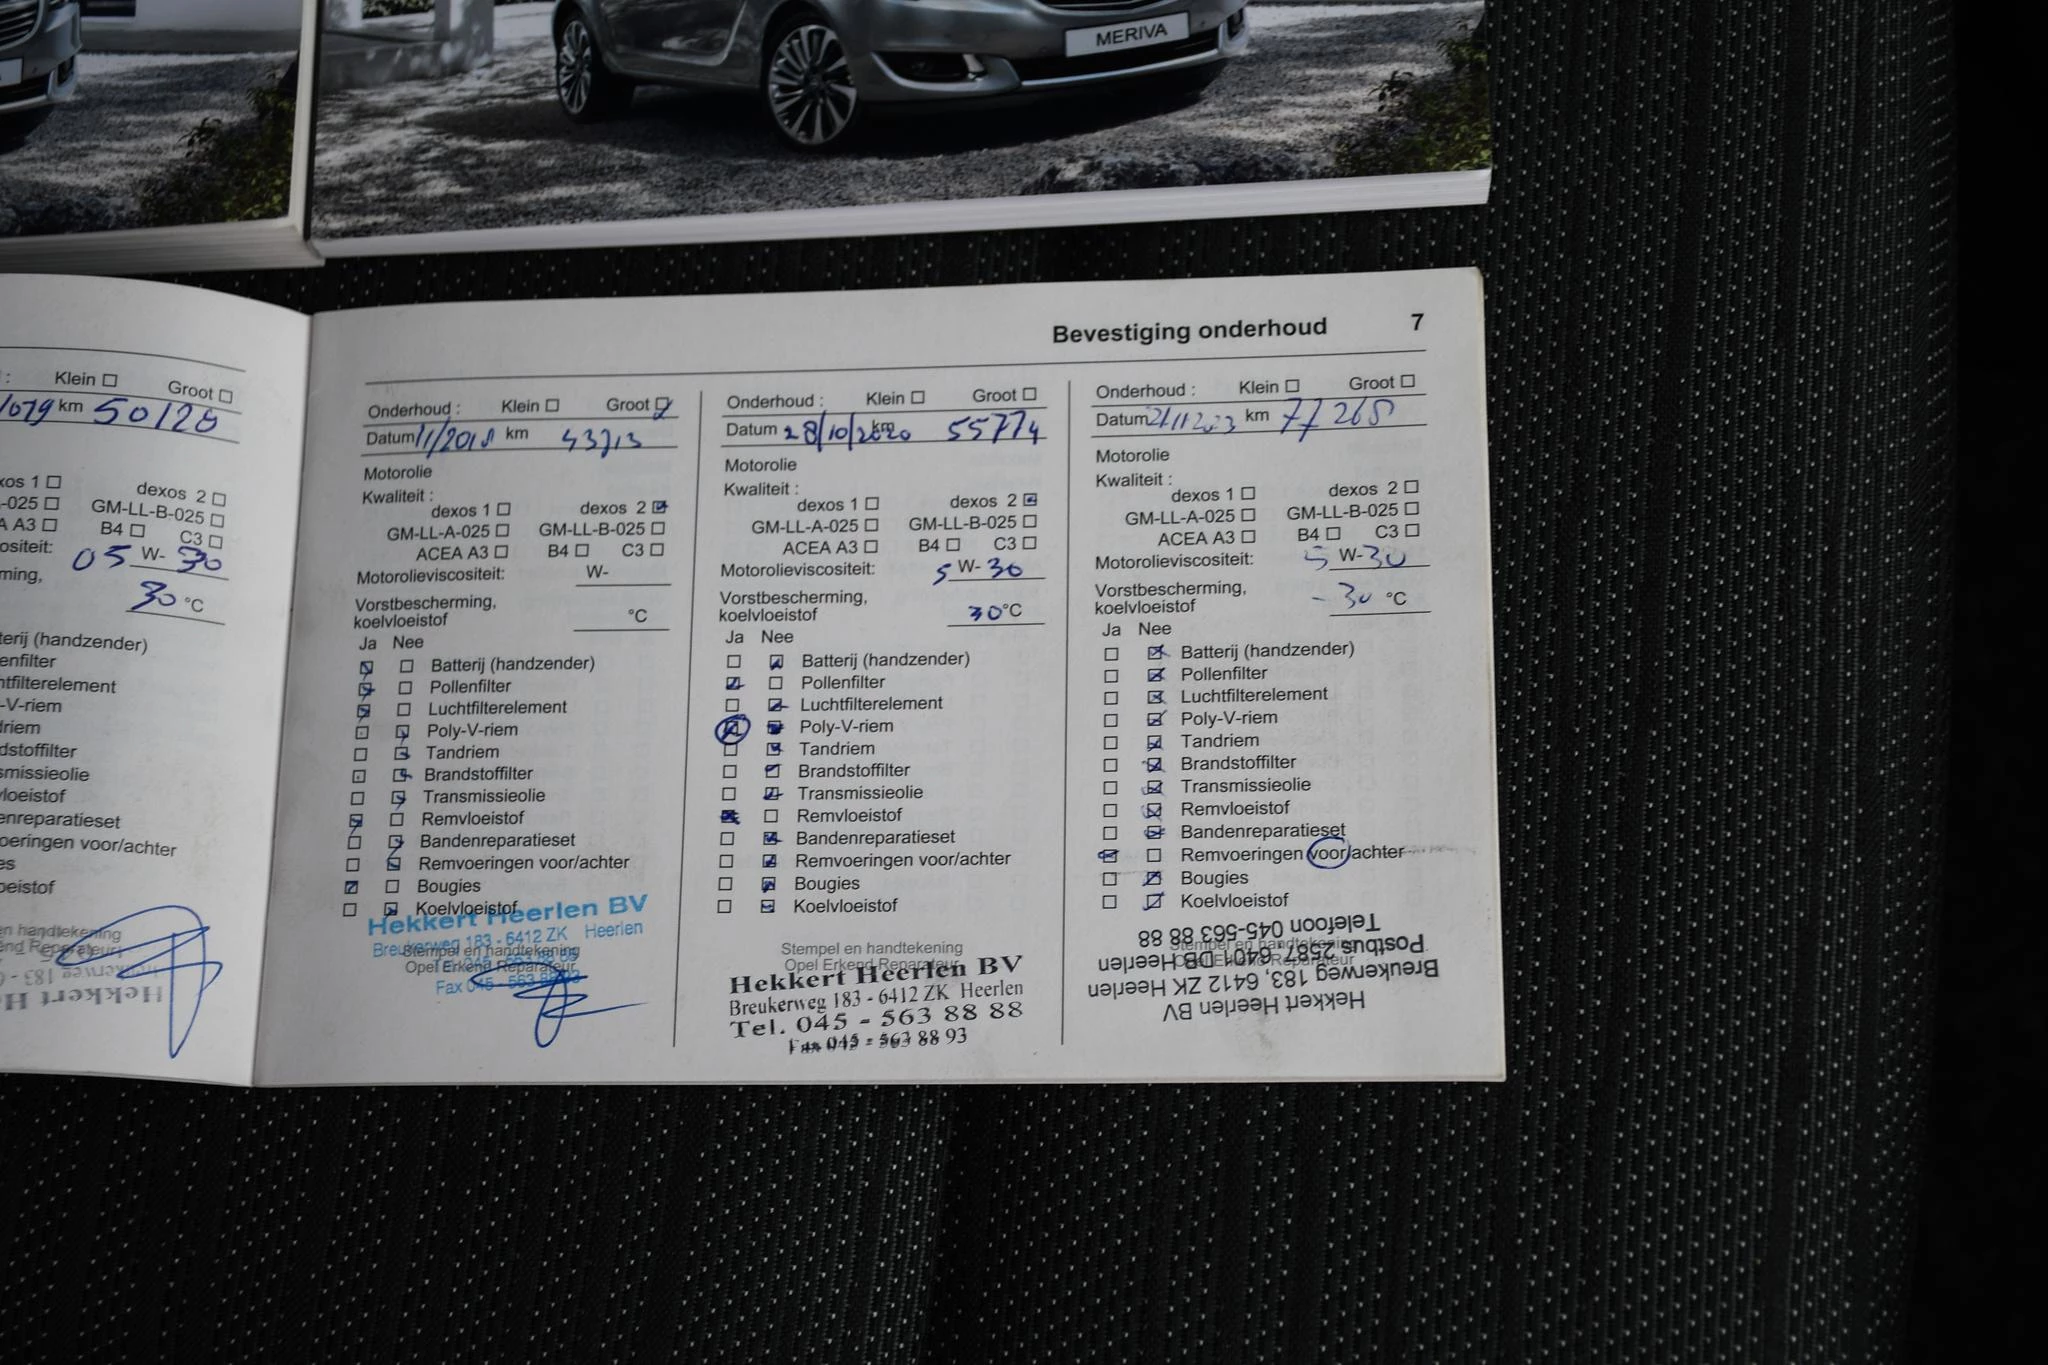 MERIVA
Bevestiging onderhoud 7
Klein Groot
km 50120
dexos 2
GM-LL-B-025
B4 C3
05 W-30
30 °C
Onderhoud : Klein Groot
Datum 11/2018 km
Motorolie
Kwaliteit :
dexos 1 dexos 2
GM-LL-A-025 GM-LL-B-025
ACEA A3 B4 C3
Motorolieviscositeit: W-
Vorstbescherming,
koelvloeistof °C
Ja Nee
Batterij (handzender)
Pollenfilter
Luchtfilterelement
Poly-V-riem
Tandriem
Brandstoffilter
Transmissieolie
Remvloeistof
Bandenreparatieset
Remvoeringen voor/achter
Bougies
Koelvloeistof
Hekkert Heerlen BV
Breukerweg 183 - 6412 ZK Heerlen
Stempel en handtekening
Opel Erkend Reparateur
Onderhoud : Klein Groot
Datum 28/10/2020 km 55774
Motorolie
Kwaliteit :
dexos 1 dexos 2
GM-LL-A-025 GM-LL-B-025
ACEA A3 B4 C3
Motorolieviscositeit: 5 W-30
Vorstbescherming,
koelvloeistof 30°C
Ja Nee
Batterij (handzender)
Pollenfilter
Luchtfilterelement
Poly-V-riem
Tandriem
Brandstoffilter
Transmissieolie
Remvloeistof
Bandenreparatieset
Remvoeringen voor/achter
Bougies
Koelvloeistof
Stempel en handtekening
Opel Erkend Reparateur
Hekkert Heerlen BV
Breukerweg 183 - 6412 ZK Heerlen
Tel. 045 - 563 88 88
Fax 045 - 563 88 93
Onderhoud : Klein Groot
Datum km 77268
Motorolie
Kwaliteit :
dexos 1 dexos 2
GM-LL-A-025 GM-LL-B-025
ACEA A3 B4 C3
Motorolieviscositeit: 5 W-30
Vorstbescherming,
koelvloeistof -30 °C
Ja Nee
Batterij (handzender)
Pollenfilter
Luchtfilterelement
Poly-V-riem
Tandriem
Brandstoffilter
Transmissieolie
Remvloeistof
Bandenreparatieset
Remvoeringen voor/achter
Bougies
Koelvloeistof
Stempel en handtekening
Opel Erkend Reparateur
Hekkert Heerlen BV
Breukerweg 183, 6412 ZK Heerlen
Postbus 2587, 6401 DB Heerlen
Telefoon 045-563 88 88